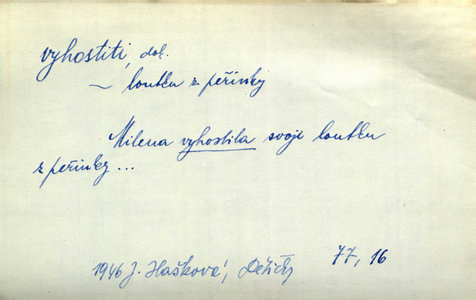 vyhostiti, dok.
~ loutku z peřinky
Milena vyhostila svoji loutku
z peřinky ...
77, 16
1946 J. Hašková, Dětičky